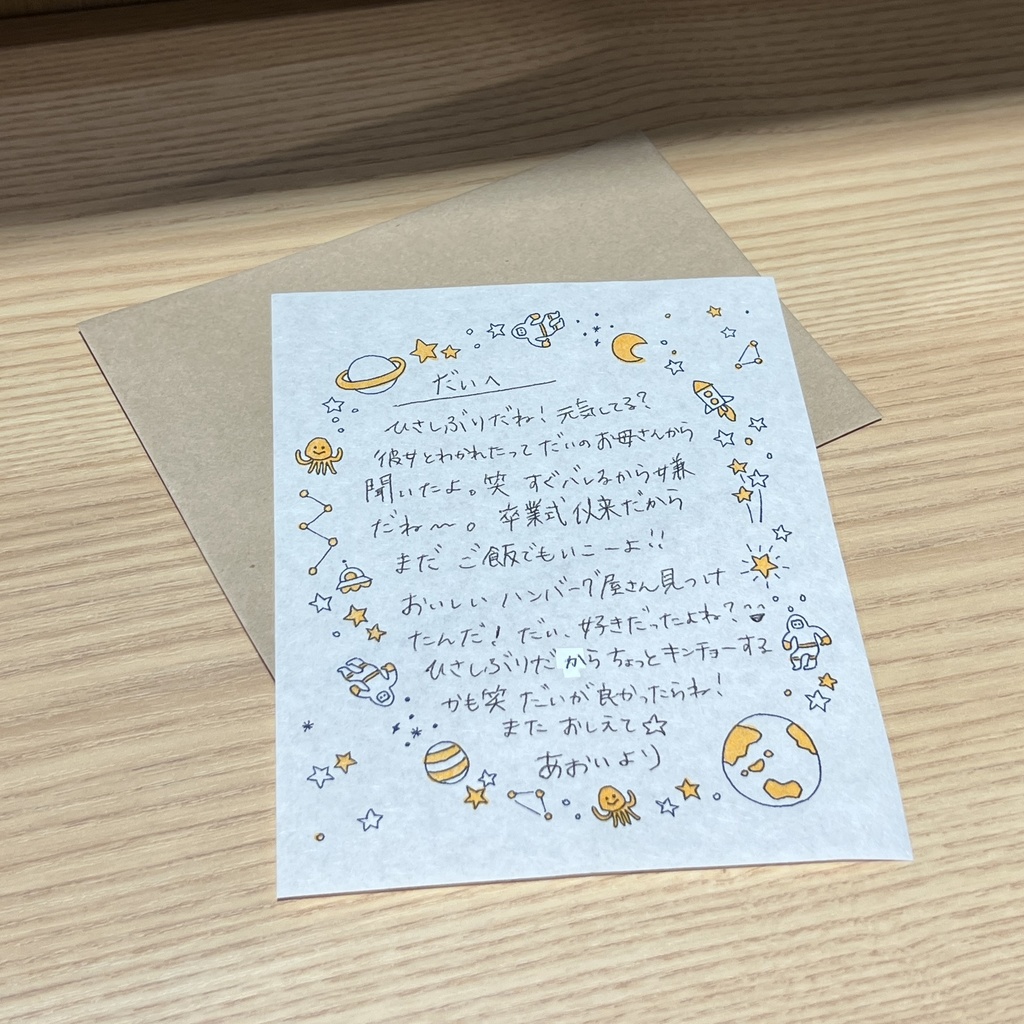 だいへ
ひさしぶりだね！元気してる？
彼女とわかれたってだいのお母さんから
聞いたよ。笑 すぐバレるから嫌
だね〜。卒業式以来だから
まだ ご飯でもいこーよ!!
おいしい ハンバーグ屋さん見つけ
たんだ！だい、好きだったよね？
ひさしぶりだからちょっとキンチョーする
かも笑 だいが良かったらね！
また おしえて☆
あおいより